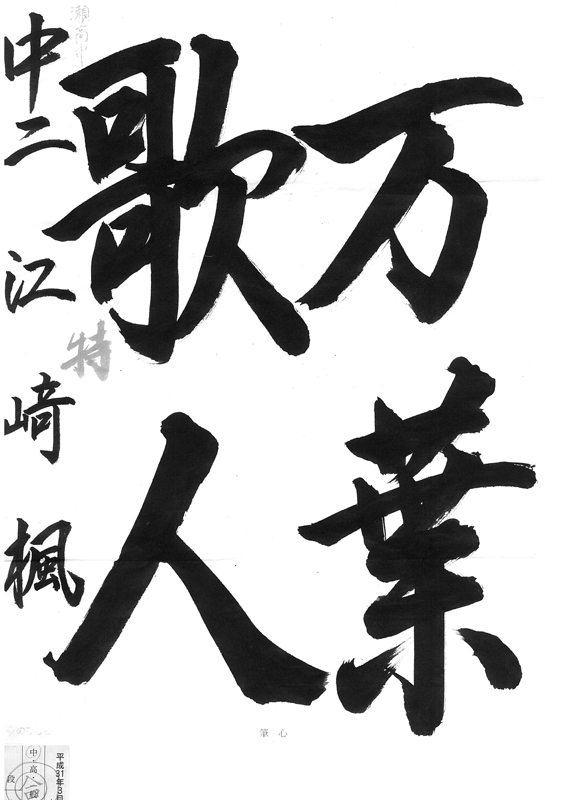 万葉
歌人
中二 江﨑 楓
特
瀬高中
筆心
平成31年3月
中・高・
段